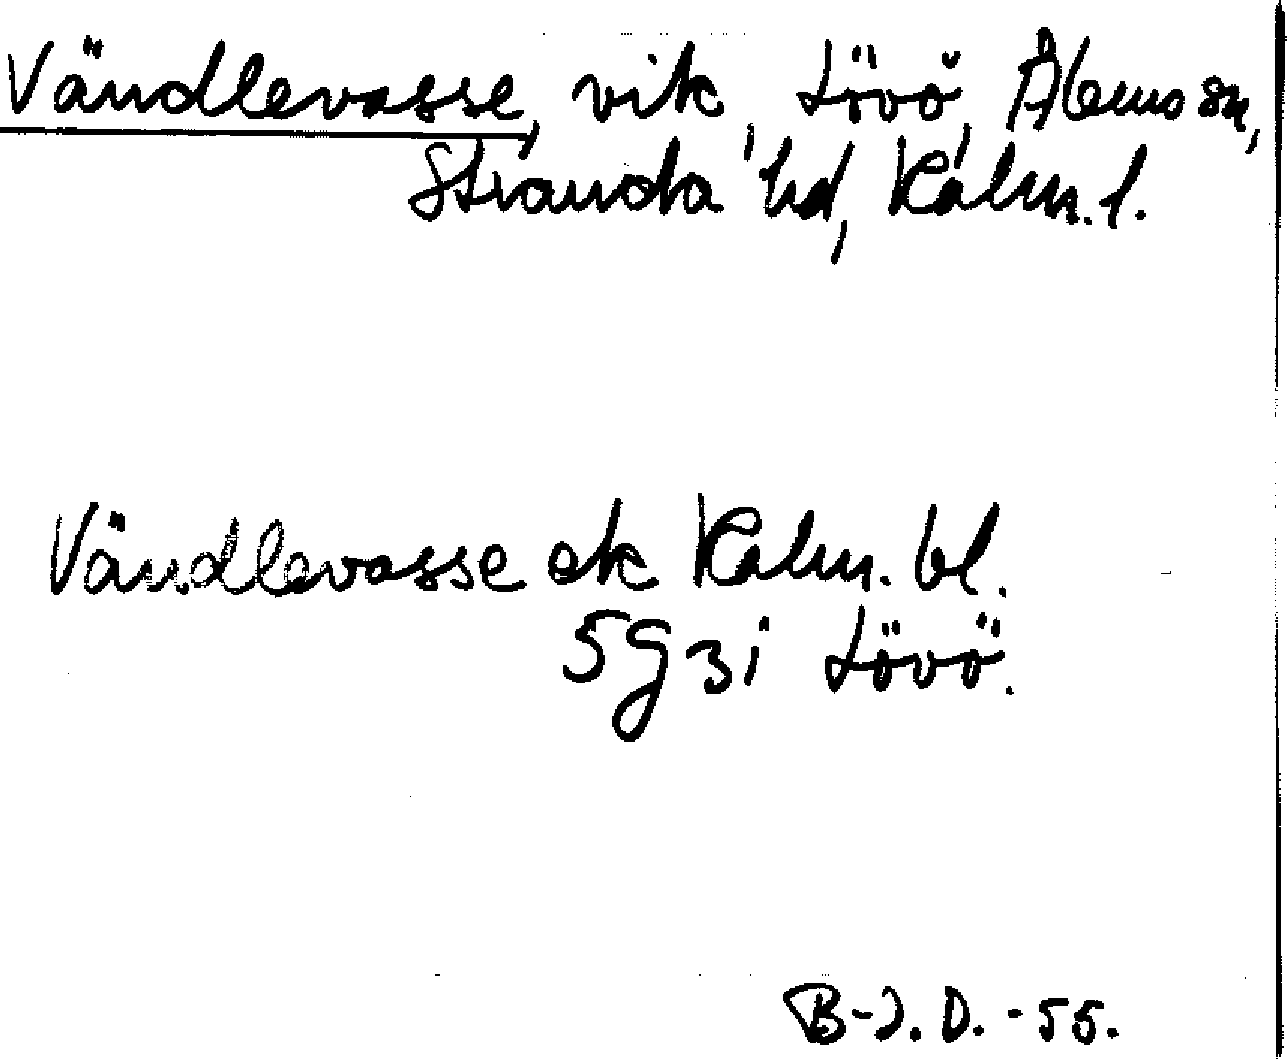 Vändlevasse, vik, Lövö, Ålems sn,
Stranda hd, Kalm. l.
Vändlevasse ek Kalm. bl.
5g3i Lövö.
B-J. D. -55.